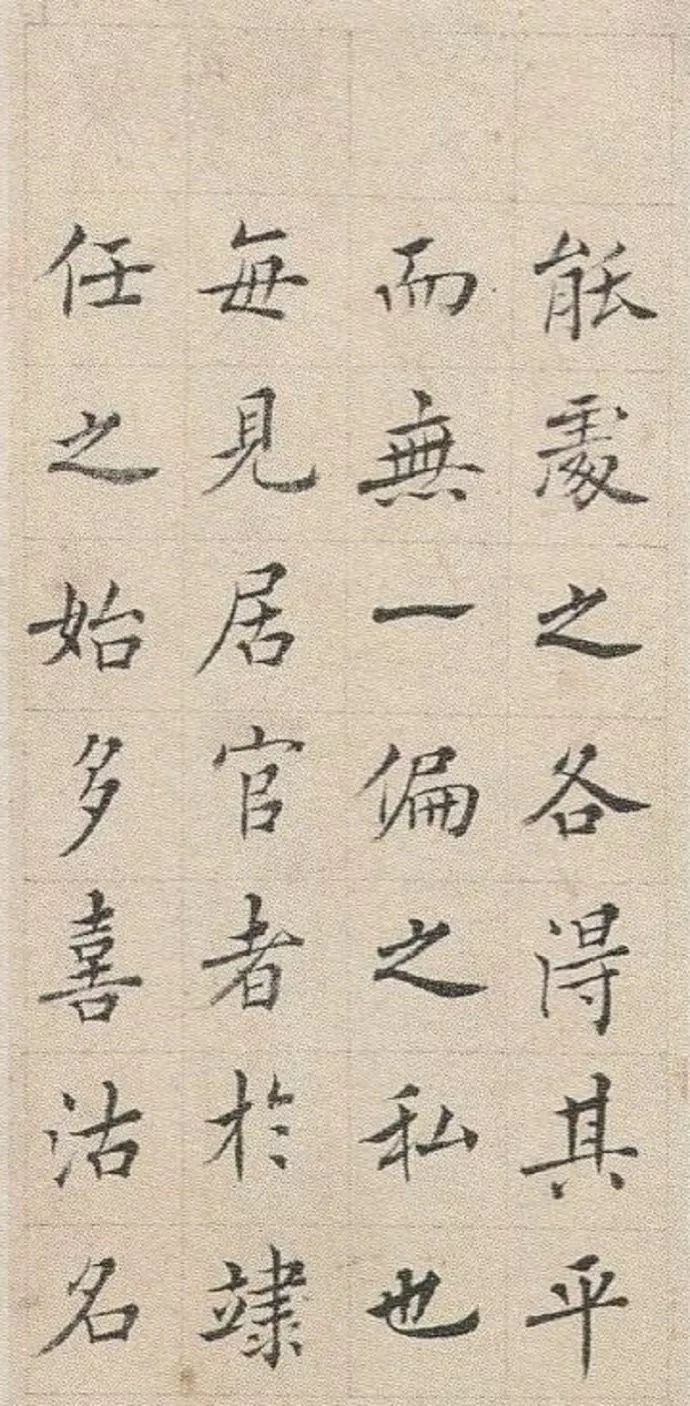 能處之各得其平
而無一偏之私也
每見居官者於竦
任之始多喜沽名